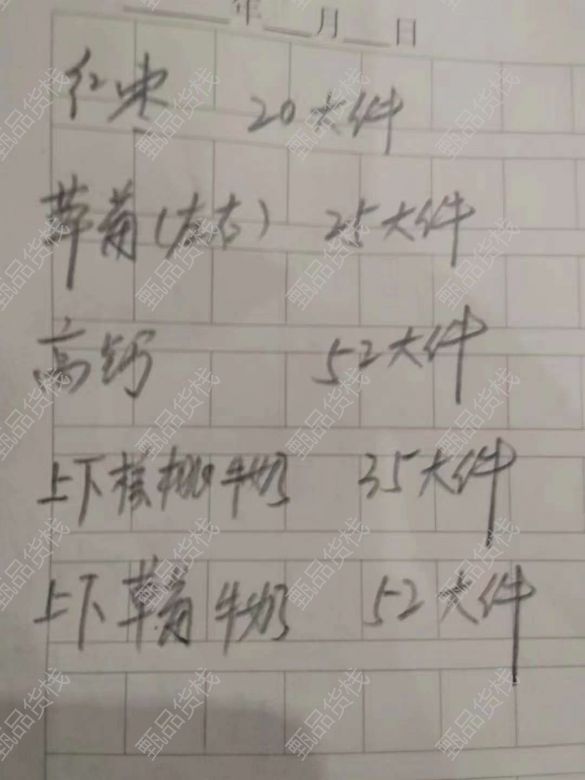 年 月 日
红枣 20大件
草莓(左右) 25大件
高钙 52大件
上下核桃牛奶 35大件
上下草莓牛奶 52大件
甄品货栈